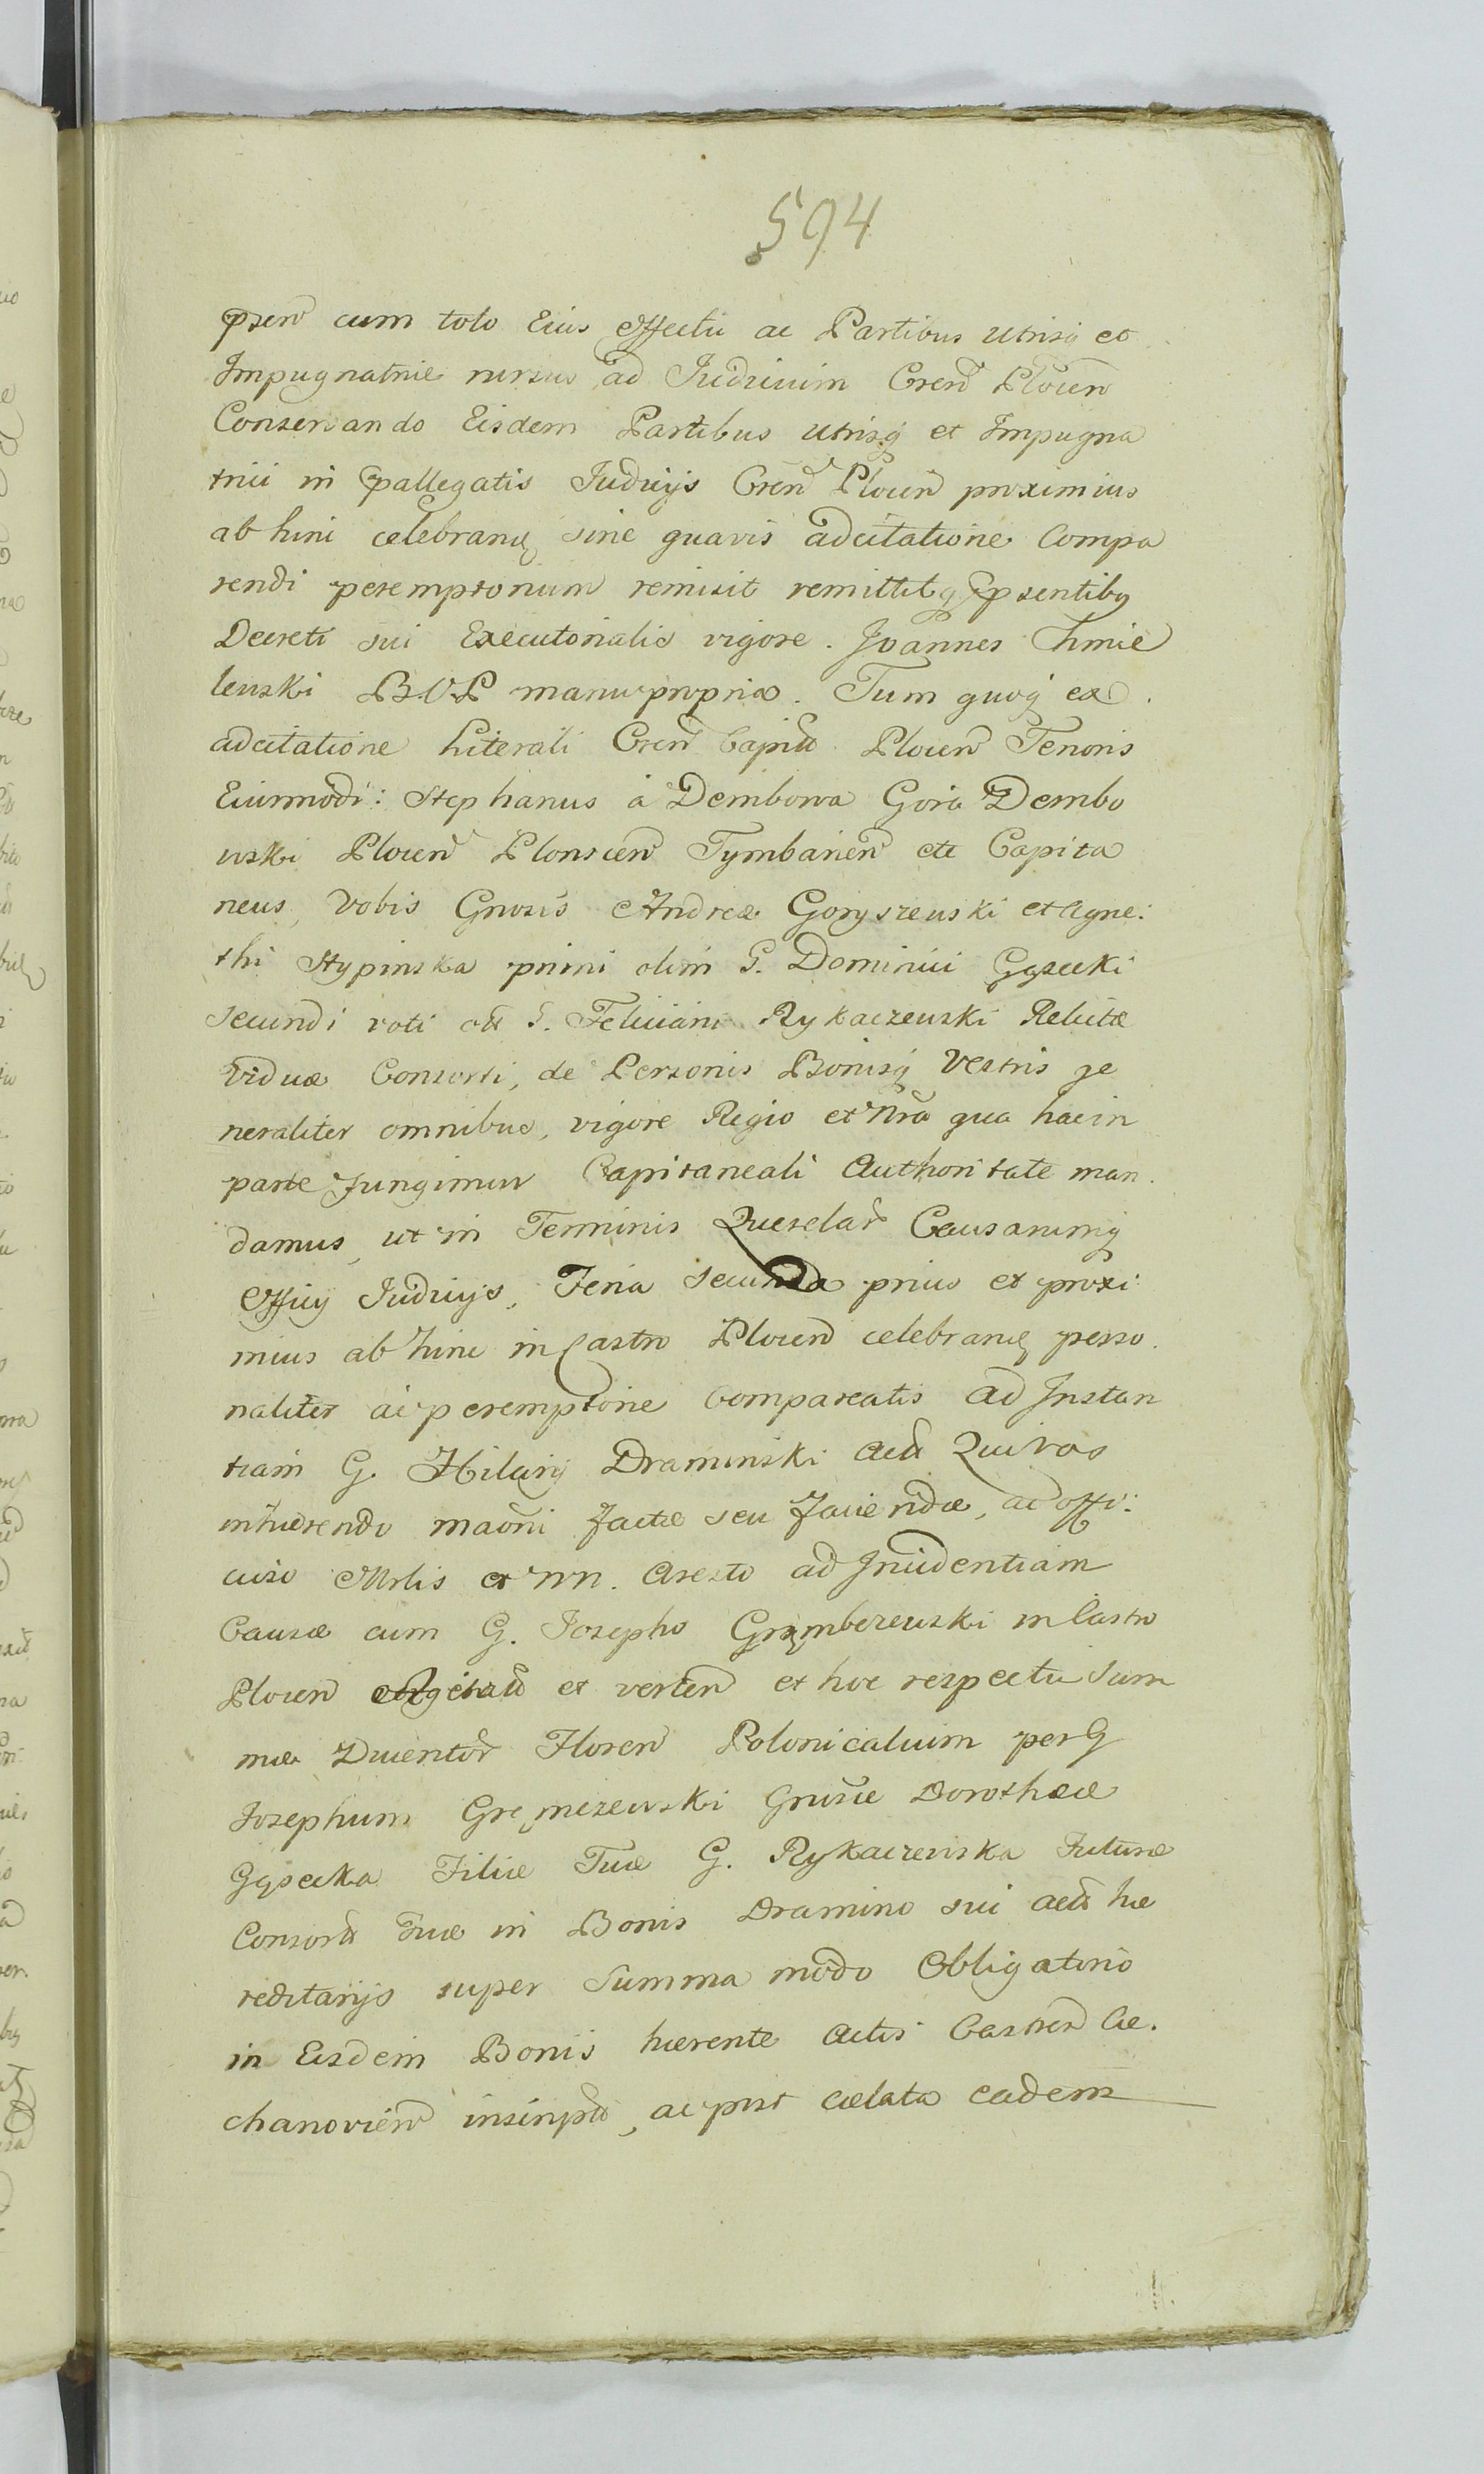 594
psen cum toto Eius effectu ac Partibus utrisq et
Impugnatrice rursus ad Iudicium Cren Plocen
Conservando Eisdem Partibus utrisq et Impugna
trici in pallegatis Iudicijs Cren Plocen proximius
ab hinc celebran sine quavis adcitatione Compa
rendi peremptorium remisit remittitq psentibq
Decreti sui Executorialis vigore. Joannes Chmie
lewski BVP manu propria. Tum quoq ex
adcitatione Literali Cren Capit Plocen Tenoris
Eiusmodi: Stephanus a Dembowa Gora Dembo
wski Plocen Plonscen Tymbarien etc Capita
neus, Vobis Gnosis Andreæ Goryszewski et Agne:
thi Stypinska primi olim G. Dominici Gąsecki
secundi voti ott G. Feliciani Rykaczewski Relictæ
Viduæ Consorti, de Personis Bonisq Vestris ge
neraliter omnibus, vigore Regio et Nra qua hac in
parte Jungimur Capitaneali Authoritate man
damus, ut in Terminis Querelar Causarumq
Officij Iudicijs, Feria secunda prius et proxi
mius ab hinc in Castro Plocen celebran perso
naliter ac peremptorie Compareatis ad Instan
tiam G. Hilarij Draminski Act Qui Vos
inhærendo maoni factæ seu faciendæ, ac offi:
cioso Mrlis et NN. Aresto ad Incidentiam
Causæ cum G. Josepho Grzymbczewski in Castro
Plocen et verten et hoc respectu Sum
mæ Ducentor Floren Polonicalium per G
Josephum Gręmczewski Gnosæ Dorotheæ
Gąsecka Filiæ Tuæ G. Rykaczewska Futuræ
Consort suæ in Bonis Dramino sui act hæ
reditarijs super Summa modo Obligatorio
in Eisdem Bonis hærente Actis Castren Cie
chanovien inscript, ac post cælata eadem